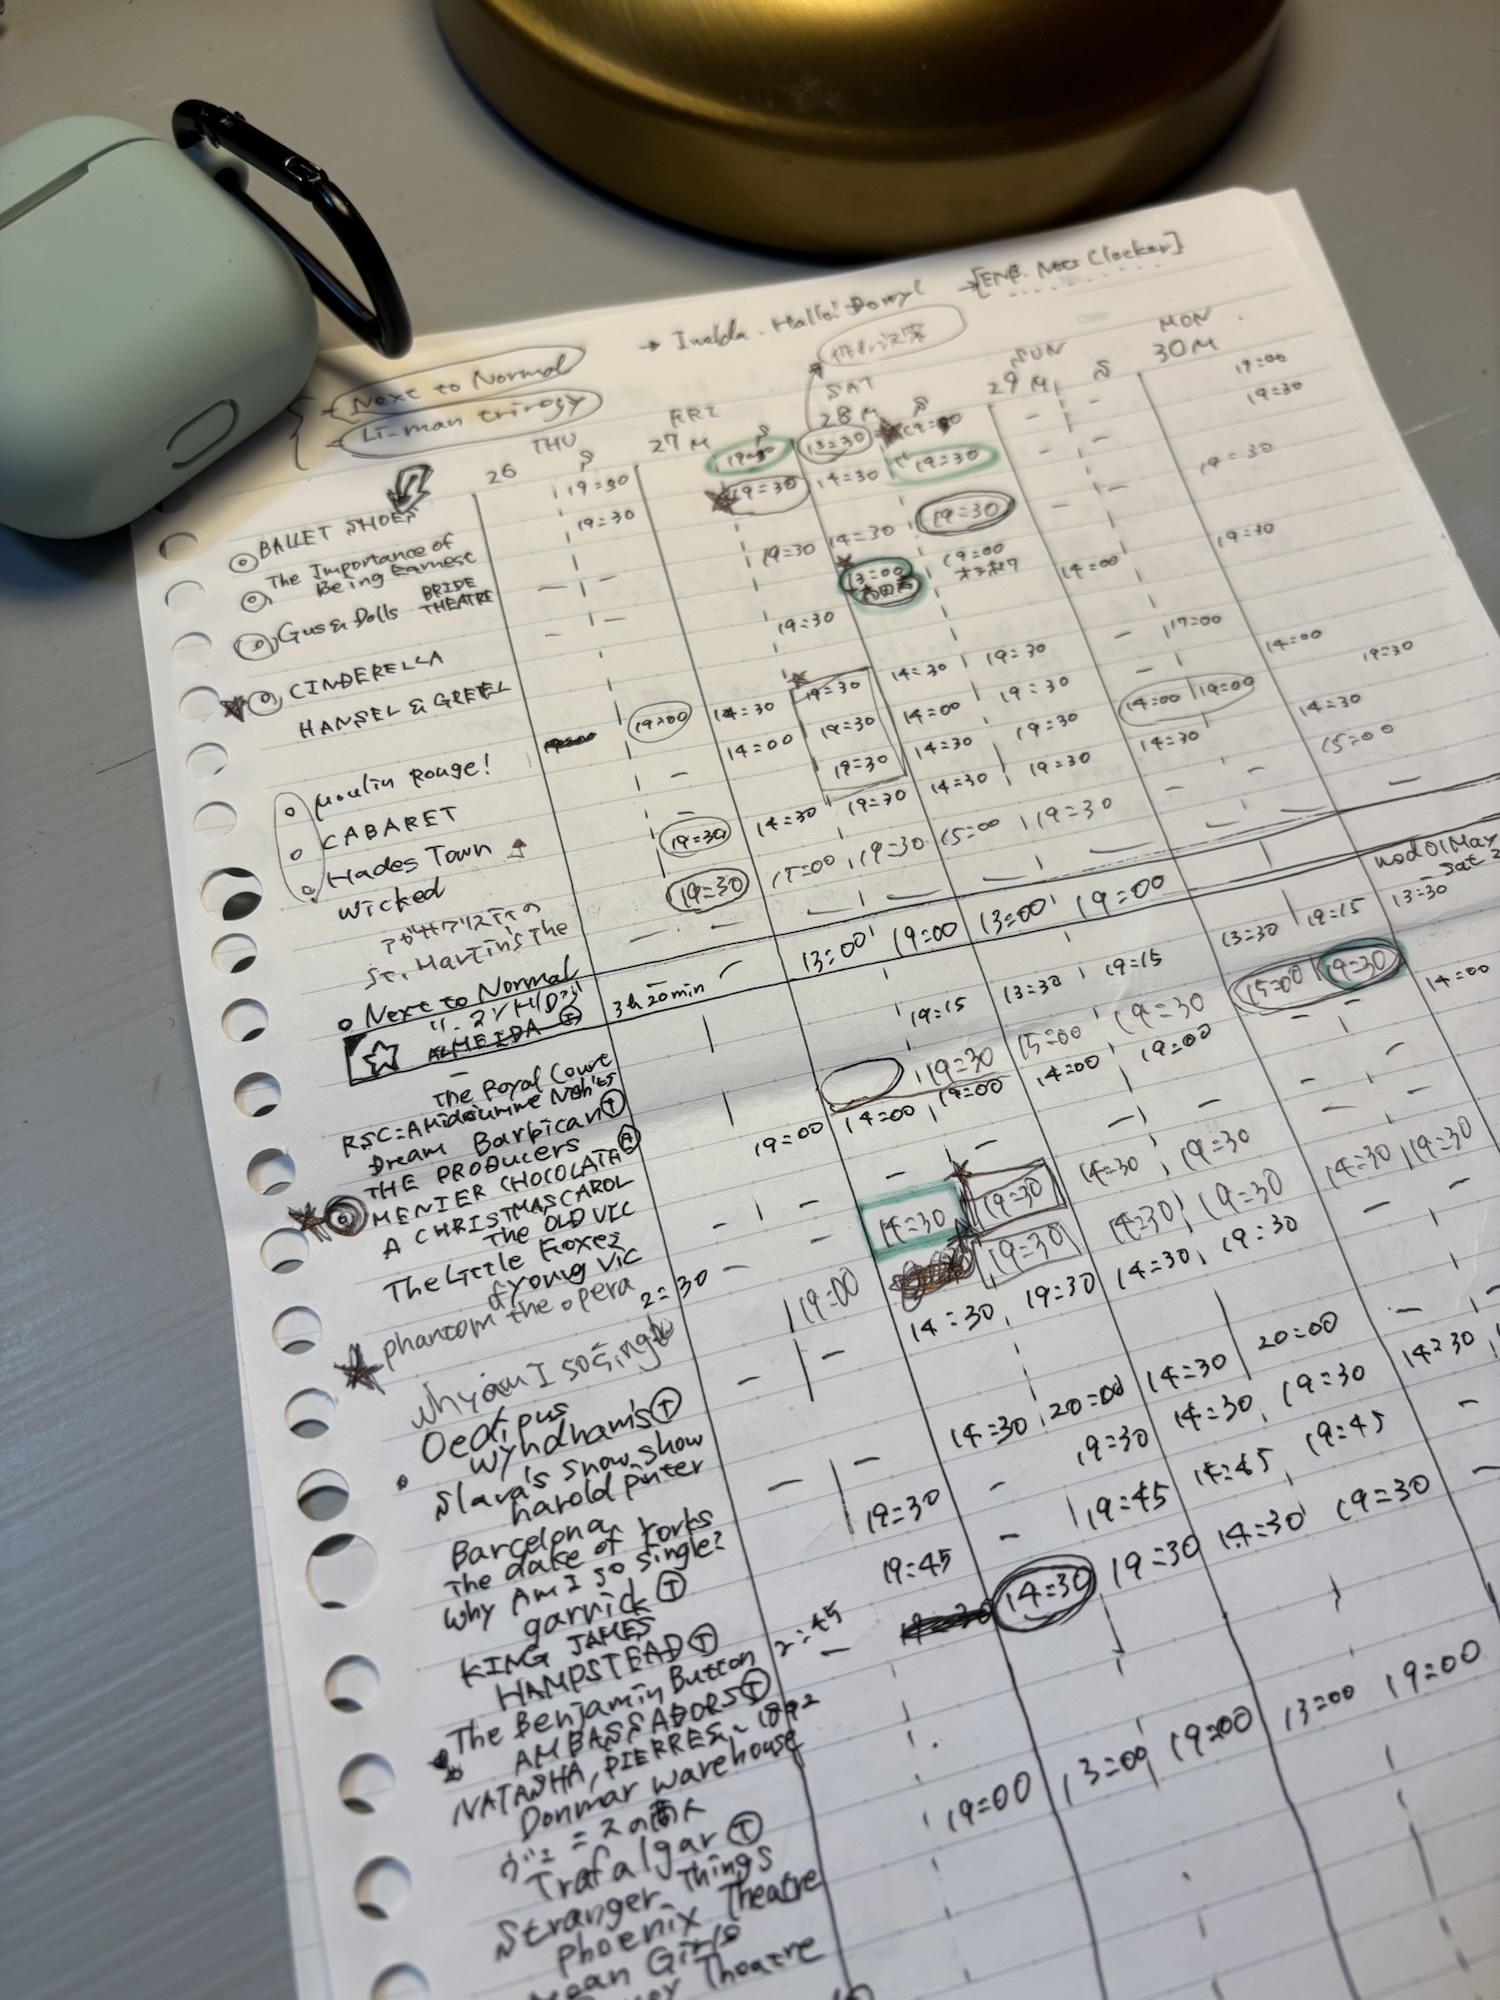 → Imelda. Hallo! Dowry!
→[ENB.
Next to Normal
Li-man trirogy
THU FRI SAT SUN MON
26 S 27 M S 28 M S 29 M S 30 M
BALLET SHOES 19=30 13=30 19=00
The Importance of 19=30 19=30 14=30 19=30 - - 19=30
Being Earnest
Gus & Dolls BRIDE - - 19=30 14=30 19=30 - - 19=30
THEATRE
CINDERELLA - - 19=30 13=00 19=00 14=00 19=30
HANSEL & GRETEL - 17=00
Moulin Rouge! 19=00 14=30 19=30 14=30 19=30 14=00
CABARET - 14=00 19=30 14=00 19=30 14=00 19=00 19=30
Hades Town - 19=30 14=30 19=30 14=30 14=30
Wicked 19=30 14=30 19=30 14=30 19=30 - - 15=00
アガサクリスティの
St. Martin's The 19=30 15=00 19=30 15=00 19=30 - - -
Next to Normal - - - - - -
ALMEIDA Ⓣ 3h20min - 13=00 19=00 13=00 19=00
The Royal Court 19=15 13=30 19=15 13=30 19=15 13=30
RSC=A Midsumme Nght's
Dream Barbican Ⓣ 19=30 15=00 19=30 15=00 19=30 14=00
THE PRODUCERS 19=00 14=00 19=00 14=00 19=00 - -
MENIER CHOCOLATA
A CHRISTMAS CAROL
The OLD VIC 14=30 19=30 14=30 19=30
The Little Foxes
of Young Vic 19=30 14=30 19=30 14=30 19=30
phantom the opera 2=30 19=00 14=30 19=30 14=30 19=30
why am I so single
Oedipus
Wyndham's Ⓣ 14=30 20=00 14=30 20=00
Slava's snow show
harold pinter 19=30 19=30 14=30 19=30 14=30
Barcelona
The duke of Yorks 19=45 19=45 14=45 19=45
Why Am I so single?
garrick Ⓣ 14=30 19=30 14=30 19=30
KING JAMES
HAMPSTEAD Ⓣ
The Benjamin Button 2=45
AMBASSADORS Ⓣ 19=00 13=00 19=00 13=00 19=00
NATASHA, PIERRE & 1812
Donmar warehouse
ヴェニスの商人
Trafalgar Ⓣ
Stranger Things
Phoenix Theatre
Mean Girls
Theatre